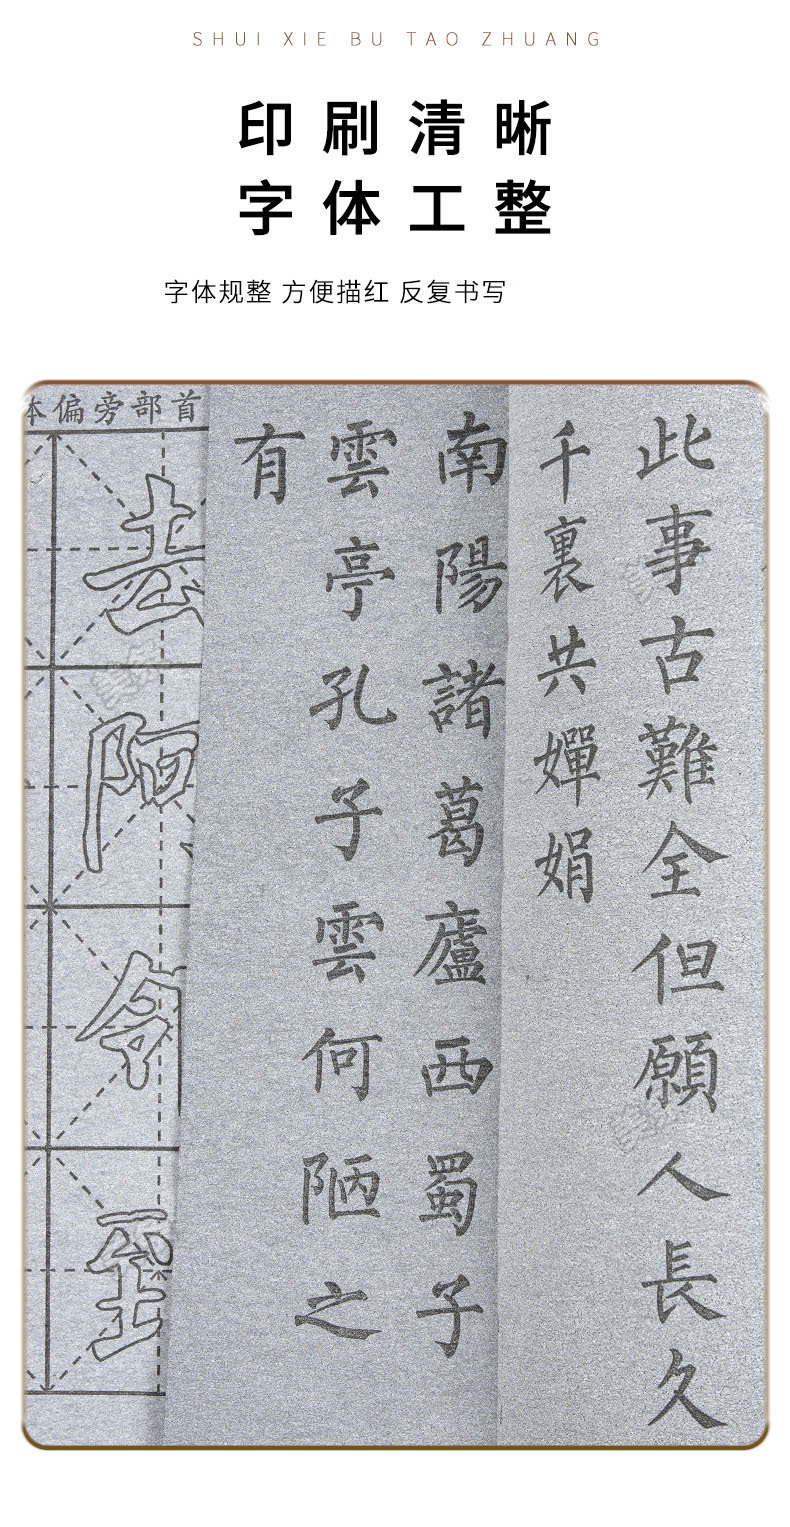 SHUI XIE BU TAO ZHUANG
印刷清晰
字体工整
字体规整 方便描红 反复书写
此事古難全但願人長久
千裏共嬋娟
南陽諸葛廬西蜀子
雲亭孔子雲何陋之
有
体偏旁部首
去
阿
命
至